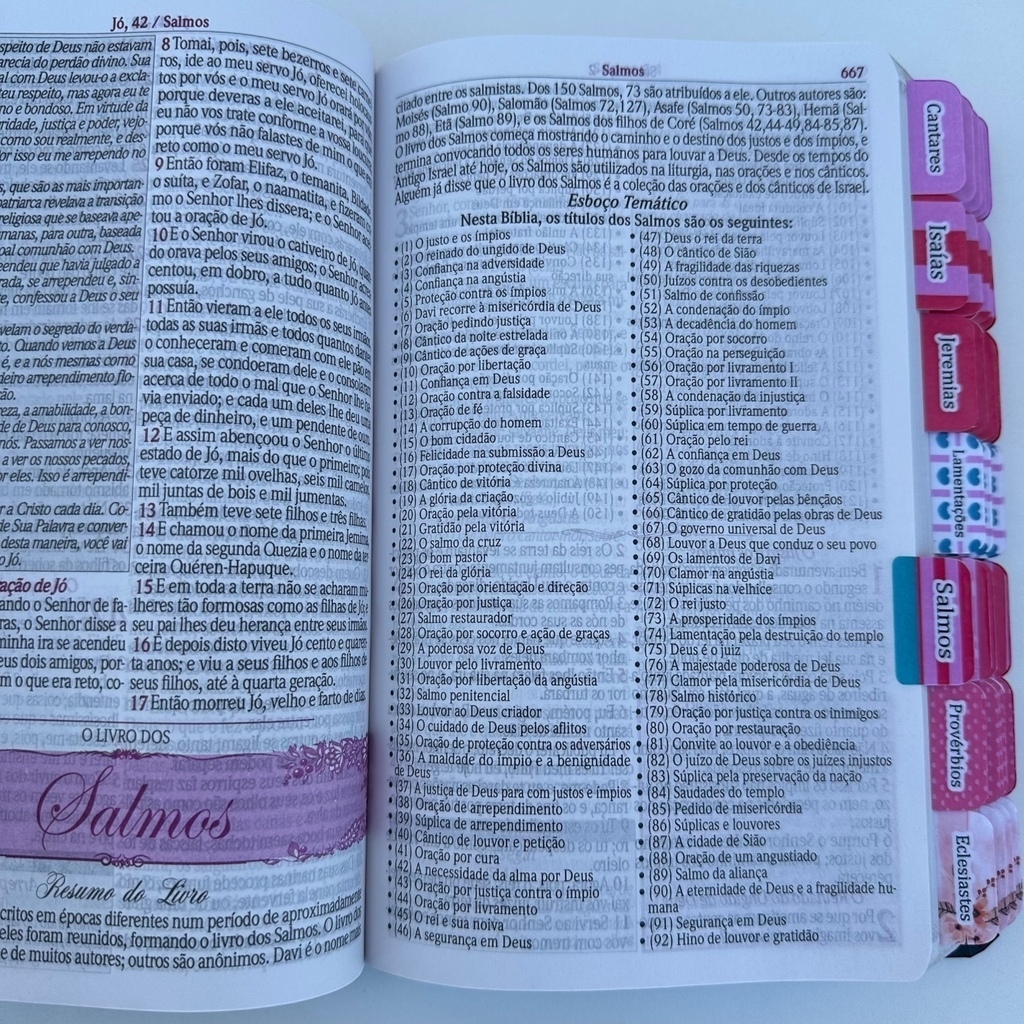 Jó, 42 / Salmos
speito de Deus não estavam
arecia do perdão divino. Sua
al com Deus levou-o a excla-
teu respeito, mas agora eu te
no e bondoso. Em virtude da
ridade, justiça e poder, vejo-
como sou realmente, e des-
or isso eu me arrependo no
s, que são as mais importan-
patriarca revelava a transição
religiosa que se baseava ape-
manas, para outra, baseada
oal comunhão com Deus.
eendeu que havia julgado a
rada, se arrependeu e, sin-
te, confessou a Deus o seu
velam o segredo do verda-
to. Quando vemos a Deus
é, e a nós mesmas como
deiro arrependimento flo-
ão.
eza, a amabilidade, a bon-
de de Deus para conosco,
nós. Passamos a ver nos-
a ver os nossos pecados,
or eles. Isso é arrependi-
r a Cristo cada dia. Co-
de Sua Palavra e conver-
desta maneira, você vai
o Jó.
ração de Jó
ando o Senhor de fa-
ras, o Senhor disse a
minha ira se acendeu
eus dois amigos, por-
m o que era reto, co-
8 Tomai, pois, sete bezerros e sete
ros, ide ao meu servo Jó, oferecei
tos por vós e o meu servo Jó orará por
porque deveras a ele aceitarei, para
eu não vos trate conforme a vossa
porquê vós não falastes de mim o que
reto como o meu servo Jó.
9 Então foram Elifaz, o temanita,
o suíta, e Zofar, o naamatita, e fizeram
mo o Senhor lhes dissera; e o Senhor
tou a oração de Jó.
10 E o Senhor virou o cativeiro de Jó,
do orava pelos seus amigos; o Senhor
centou, em dobro, a tudo quanto Jó
possuía.
11 Então vieram a ele todos os seus
todas as suas irmãs e todos quantos
o conheceram e comeram com ele pão em
sua casa, se condoeram dele e o
acerca de todo o mal que o Senhor lhe
via enviado; e cada um deles lhe deu uma
peça de dinheiro, e um pendente de
12 E assim abençoou o Senhor o último
estado de Jó, mais do que o primeiro;
teve catorze mil ovelhas, seis mil
mil juntas de bois e mil jumentas.
13 Também teve sete filhos e três filhas.
14 E chamou o nome da primeira Jemima,
o nome da segunda Quezia e o nome da
ceira Quéren-Hapuque.
15 E em toda a terra não se acharam mu-
lheres tão formosas como as filhas de Jó; e
seu pai lhes deu herança entre seus
16 E depois disto viveu Jó cento e quaren-
ta anos; e viu a seus filhos e aos filhos de
seus filhos, até à quarta geração.
17 Então morreu Jó, velho e farto de dias.
O LIVRO DOS
Salmos
Resumo do Livro
critos em épocas diferentes num período de aproximadamente
eles foram reunidos, formando o livro dos Salmos. O livro dos
e de muitos autores; outros são anônimos. Davi é o nome mais
Salmos
667
citado entre os salmistas. Dos 150 Salmos, 73 são atribuídos a ele. Outros autores são:
Moisés (Salmo 90), Salomão (Salmos 72,127), Asafe (Salmos 50, 73-83), Hemã (Sal-
mo 88), Etã (Salmo 89), e os Salmos dos filhos de Coré (Salmos 42,44-49,84-85,87).
O livro dos Salmos começa mostrando o caminho e o destino dos justos e dos ímpios, e
termina convocando todos os seres humanos para louvar a Deus. Desde os tempos do
Antigo Israel até hoje, os Salmos são utilizados na liturgia, nas orações e nos cânticos.
Alguém já disse que o livro dos Salmos é a coleção das orações e dos cânticos de Israel.
Esboço Temático
Nesta Bíblia, os títulos dos Salmos são os seguintes:
• (1) O justo e os ímpios
• (2) O reinado do ungido de Deus
• (3) Confiança na adversidade
• (4) Confiança na angústia
• (5) Proteção contra os ímpios
• (6) Davi recorre à misericórdia de Deus
• (7) Oração pedindo justiça
• (8) Cântico da noite estrelada
• (9) Cântico de ações de graça
• (10) Oração por libertação
• (11) Confiança em Deus
• (12) Oração contra a falsidade
• (13) Oração de fé
• (14) A corrupção do homem
• (15) O bom cidadão
• (16) Felicidade na submissão a Deus
• (17) Oração por proteção divina
• (18) Cântico de vitória
• (19) A glória da criação
• (20) Oração pela vitória
• (21) Gratidão pela vitória
• (22) O salmo da cruz
• (23) O bom pastor
• (24) O rei da glória
• (25) Oração por orientação e direção
• (26) Oração por justiça
• (27) Salmo restaurador
• (28) Oração por socorro e ação de graças
• (29) A poderosa voz de Deus
• (30) Louvor pelo livramento
• (31) Oração por libertação da angústia
• (32) Salmo penitencial
• (33) Louvor ao Deus criador
• (34) O cuidado de Deus pelos aflitos
• (35) Oração de proteção contra os adversários
• (36) A maldade do ímpio e a benignidade
de Deus
• (37) A justiça de Deus para com justos e ímpios
• (38) Oração de arrependimento
• (39) Súplica de arrependimento
• (40) Cântico de louvor e petição
• (41) Oração por cura
• (42) A necessidade da alma por Deus
• (43) Oração por justiça contra o ímpio
• (44) Oração por livramento
• (45) O rei e sua noiva
• (46) A segurança em Deus
• (47) Deus o rei da terra
• (48) O cântico de Sião
• (49) A fragilidade das riquezas
• (50) Juízos contra os desobedientes
• (51) Salmo de confissão
• (52) A condenação do ímpio
• (53) A decadência do homem
• (54) Oração por socorro
• (55) Oração na perseguição
• (56) Oração por livramento I
• (57) Oração por livramento II
• (58) A condenação da injustiça
• (59) Súplica por livramento
• (60) Súplica em tempo de guerra
• (61) Oração pelo rei
• (62) A confiança em Deus
• (63) O gozo da comunhão com Deus
• (64) Súplica por proteção
• (65) Cântico de louvor pelas bênçãos
• (66) Cântico de gratidão pelas obras de Deus
• (67) O governo universal de Deus
• (68) Louvor a Deus que conduz o seu povo
• (69) Os lamentos de Davi
• (70) Clamor na angústia
• (71) Súplicas na velhice
• (72) O rei justo
• (73) A prosperidade dos ímpios
• (74) Lamentação pela destruição do templo
• (75) Deus é o juiz
• (76) A majestade poderosa de Deus
• (77) Clamor pela misericórdia de Deus
• (78) Salmo histórico
• (79) Oração por justiça contra os inimigos
• (80) Oração por restauração
• (81) Convite ao louvor e a obediência
• (82) O juízo de Deus sobre os juízes injustos
• (83) Súplica pela preservação da nação
• (84) Saudades do templo
• (85) Pedido de misericórdia
• (86) Súplicas e louvores
• (87) A cidade de Sião
• (88) Oração de um angustiado
• (89) Salmo da aliança
• (90) A eternidade de Deus e a fragilidade hu-
mana
• (91) Segurança em Deus
• (92) Hino de louvor e gratidão
Cantares
Isaías
Jeremias
Lamentações
Salmos
Provérbios
Eclesiastes